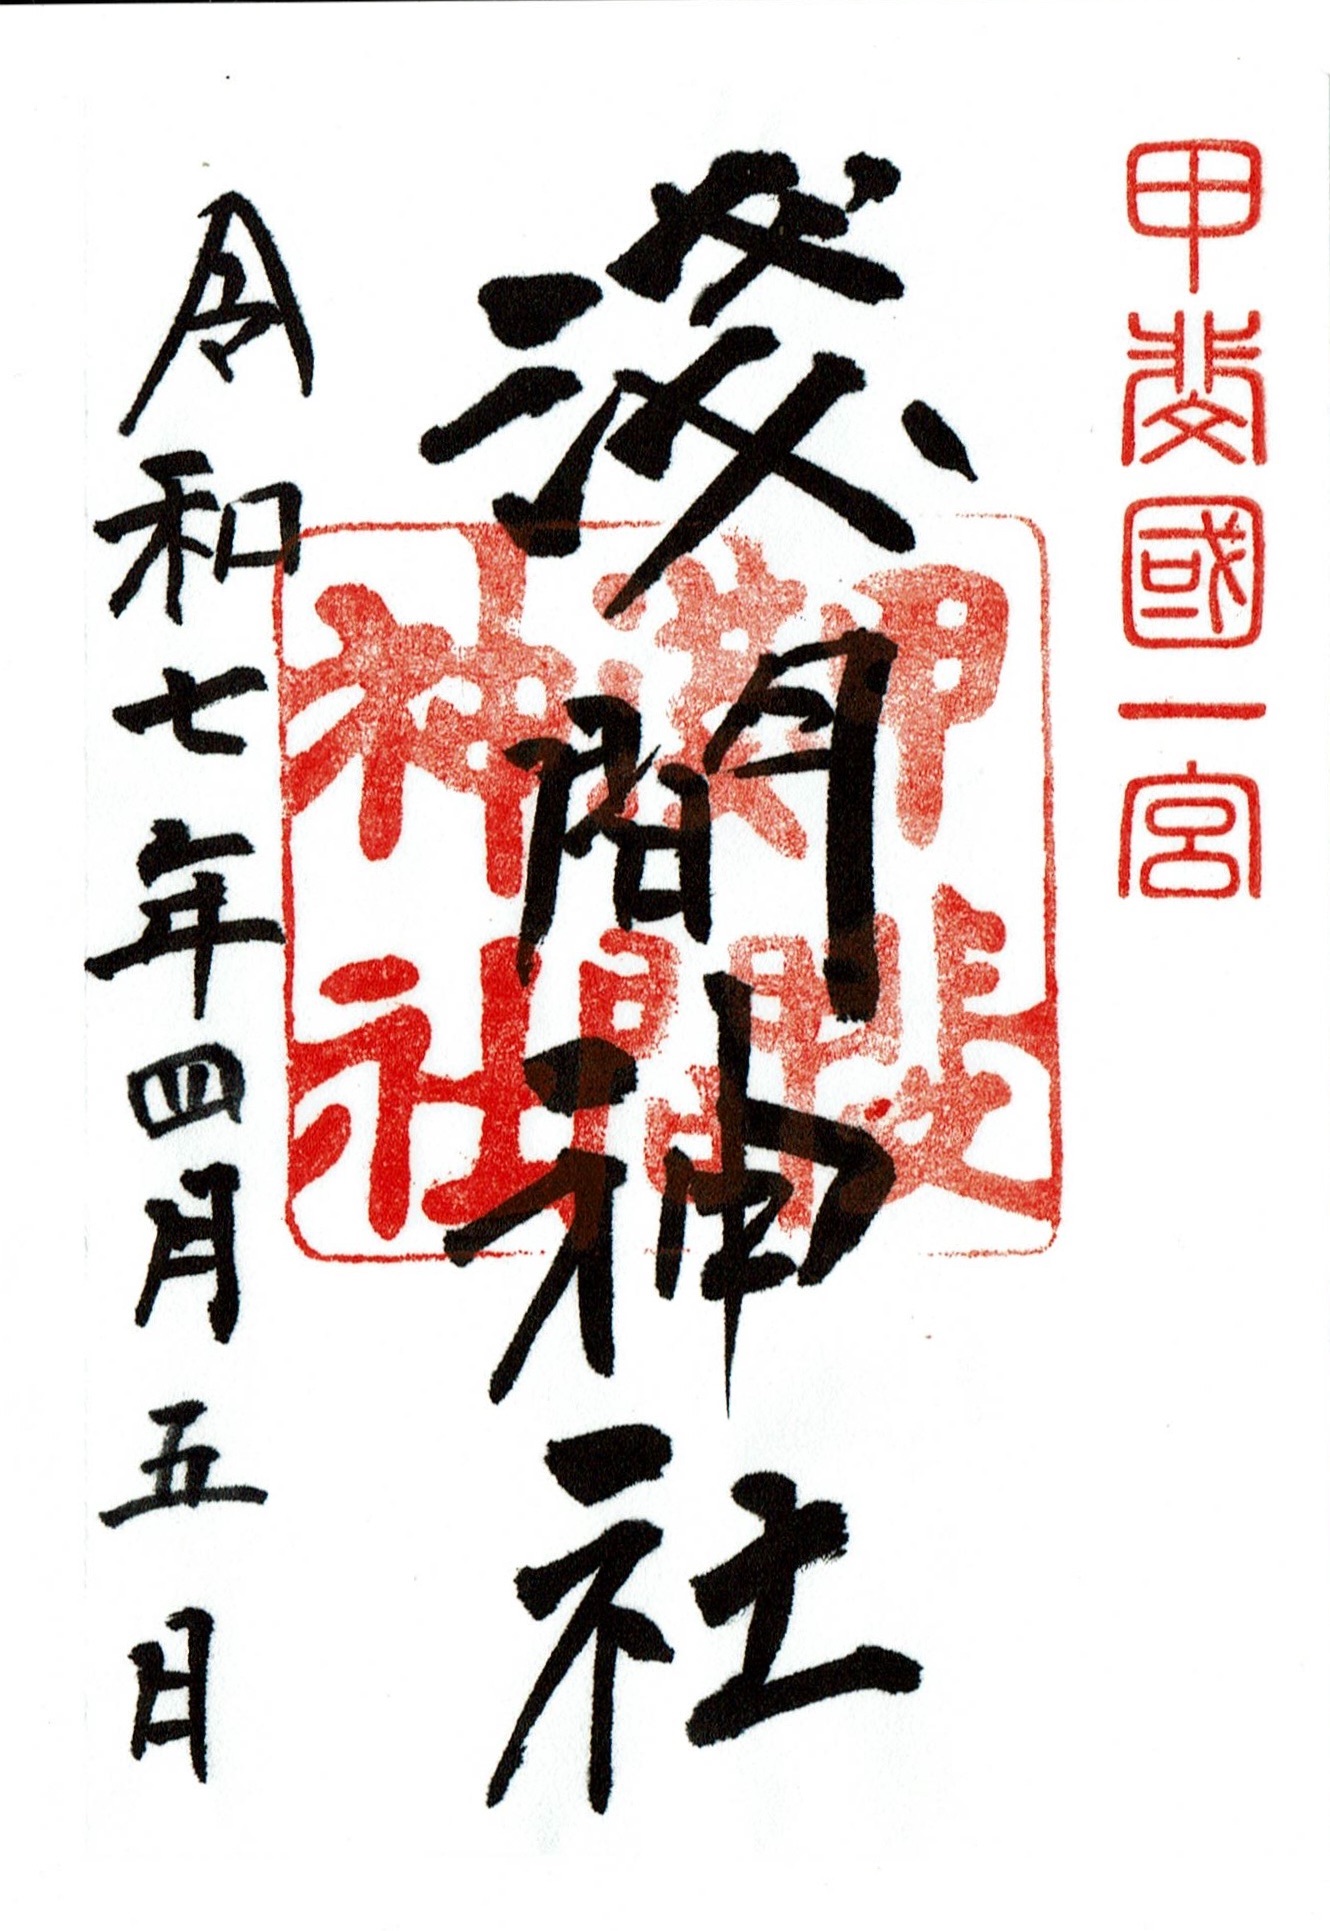 甲斐國一宮
淺間神社
甲斐
淺間
神社
令和七年四月五日